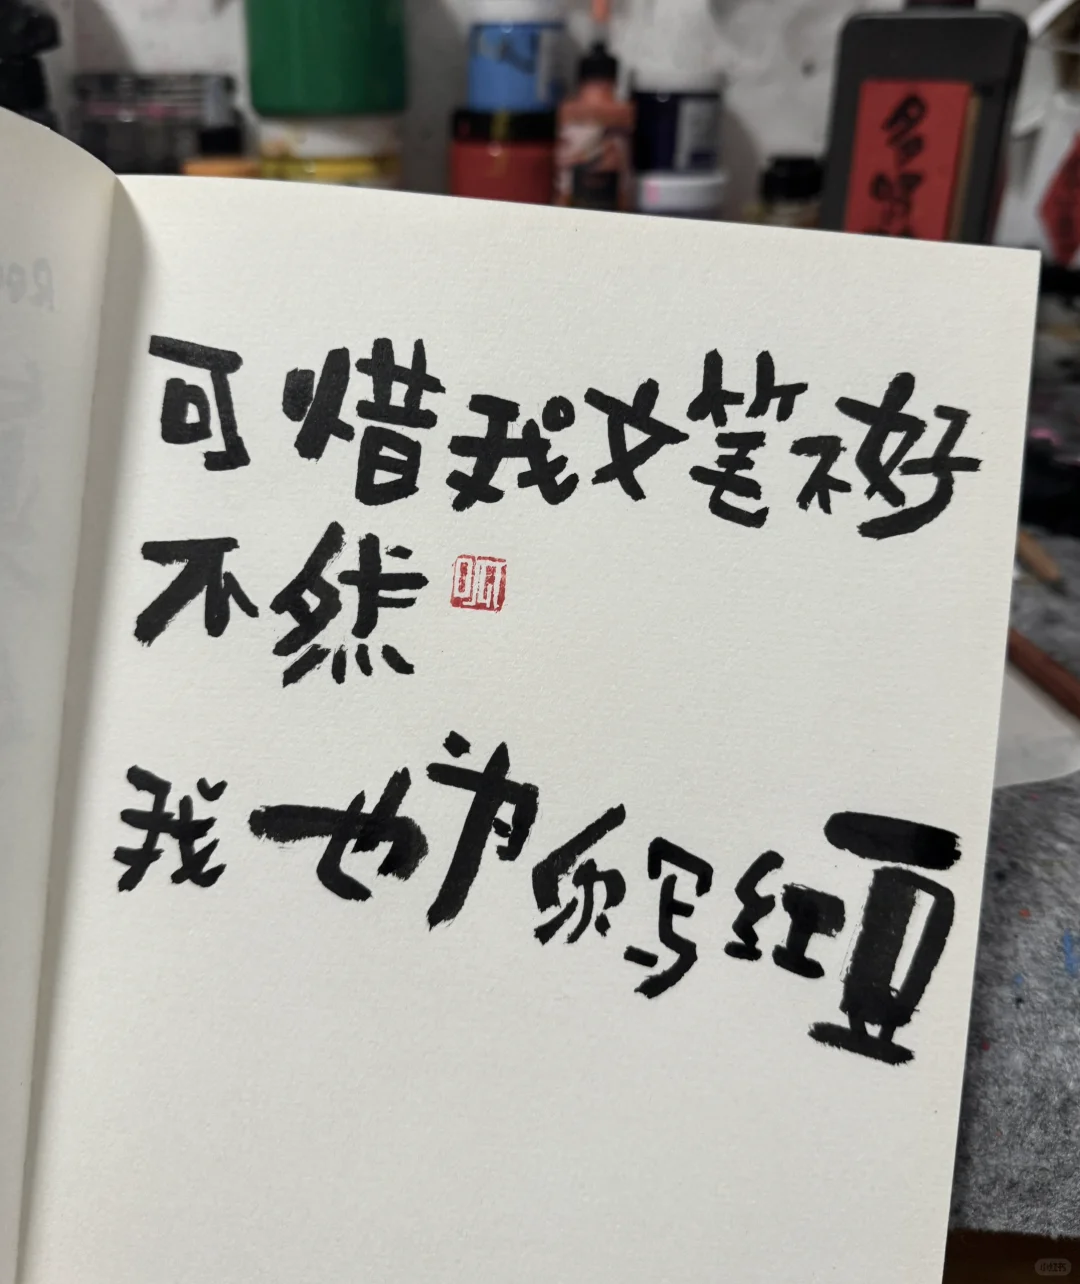 可惜我文笔不好
不然
我也为你写红豆
小红书